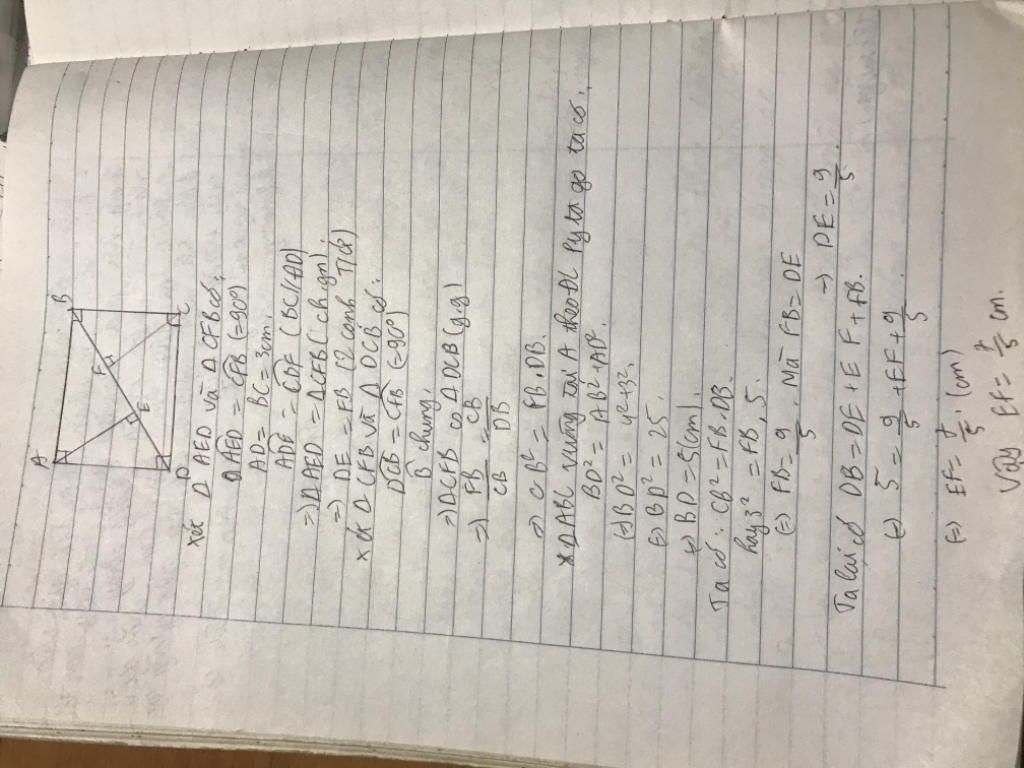 A
B
F
E
D
C
Xét Δ AED và Δ CFB có:
Δ AED = CFB (=90°)
AD = BC = 3cm.
ADE = CDF (BC//AD)
=) Δ AED = Δ CFB (ch.gn).
=) DE = FB (2 cạnh T/ứ)
* Xét Δ CFB và Δ DCB có:
DCB = CFB (=90°)
B chung.
=) ΔCFB ∽ ΔDCB (g.g)
=) FB/CB = CB/DB
=) CB² = FB.DB.
* ΔABC vuông tại A theo ĐL Pytago ta có:
BD² = AB²+AD².
(=) BD² = 4²+3².
(=) BD² = 25.
(=) BD = 5(cm).
Ta có: CB² = FB.DB.
hay 3² = FB.5.
(=) FB = 9/5. Mà FB = DE => DE = 9/5.
Ta lại có DB = DE + EF + FB.
(=) 5 = 9/5 + EF + 9/5.
(=) EF = /5 (cm)
Vậy EF = /5 cm.